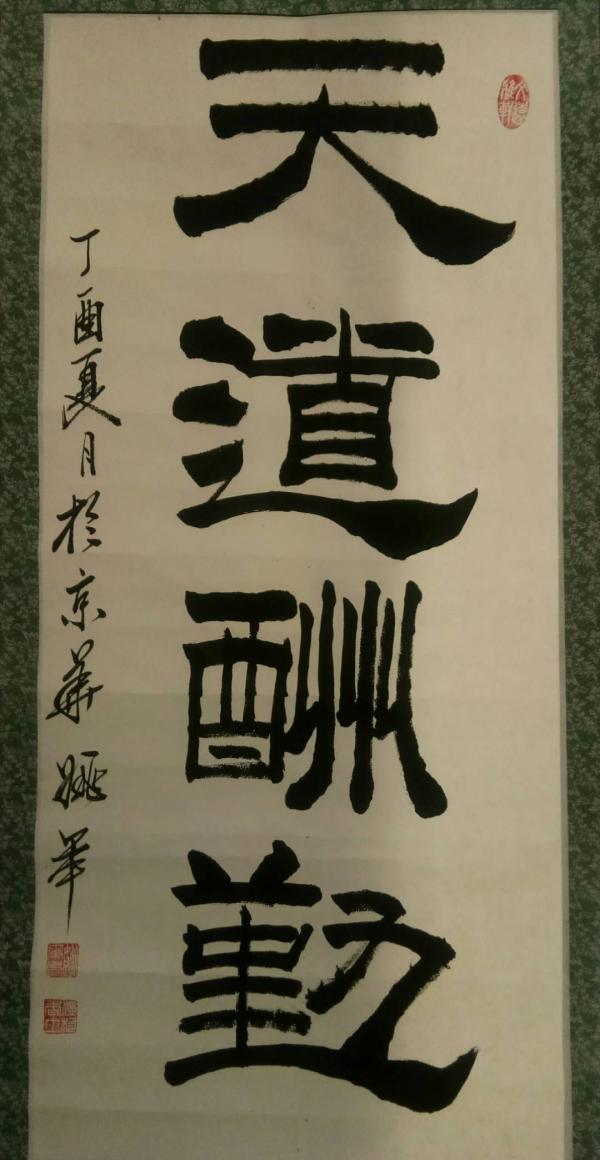 天道酬勤
丁酉夏月於京華姚